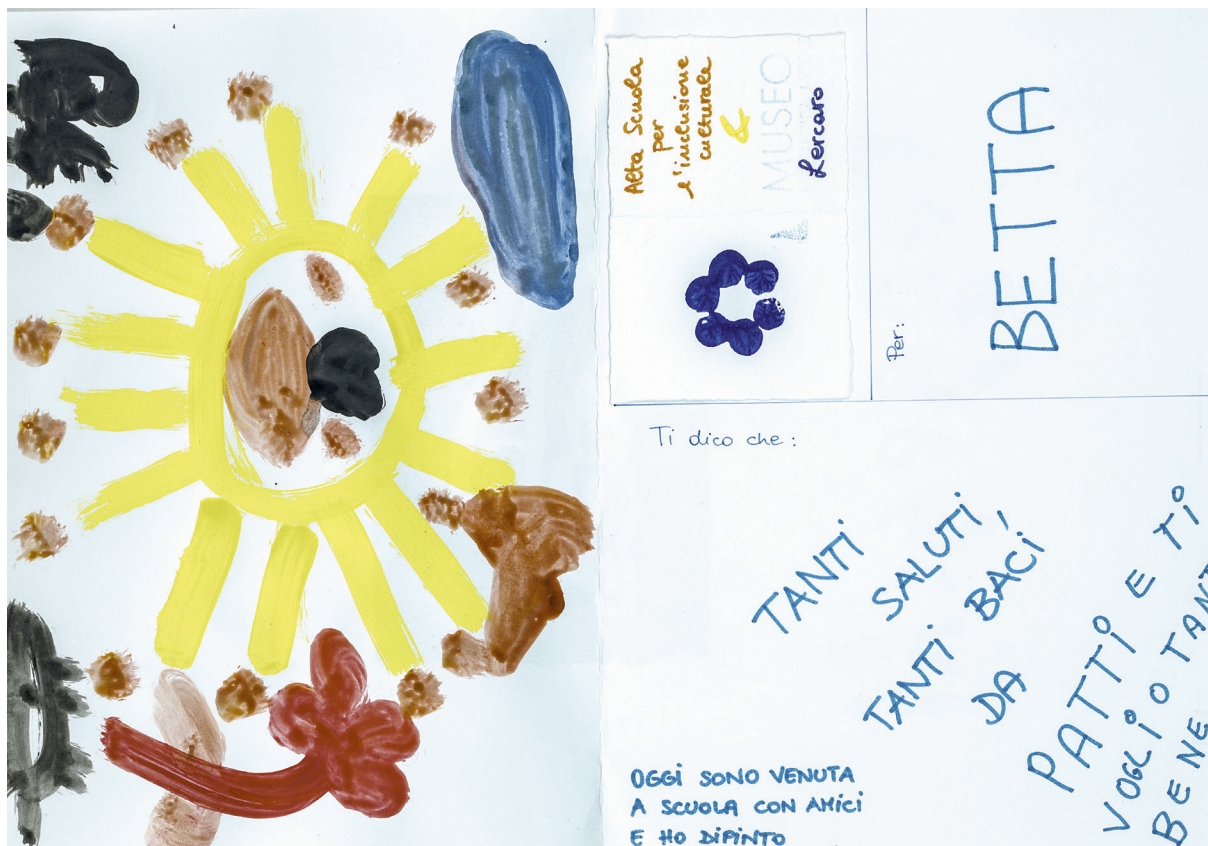 Alta Scuola
per
l'inclusione
culturale
&
MUSEO
Lercaro
Per:
BETTA
Ti dico che:
TANTi
SALUTi,
TANTi BACi
DA
PATTi E Ti
VOGLiO TANT
BENE
OGGi SONO VENUTA
A SCUOLA CON AMiCi
E HO DiPiNTO